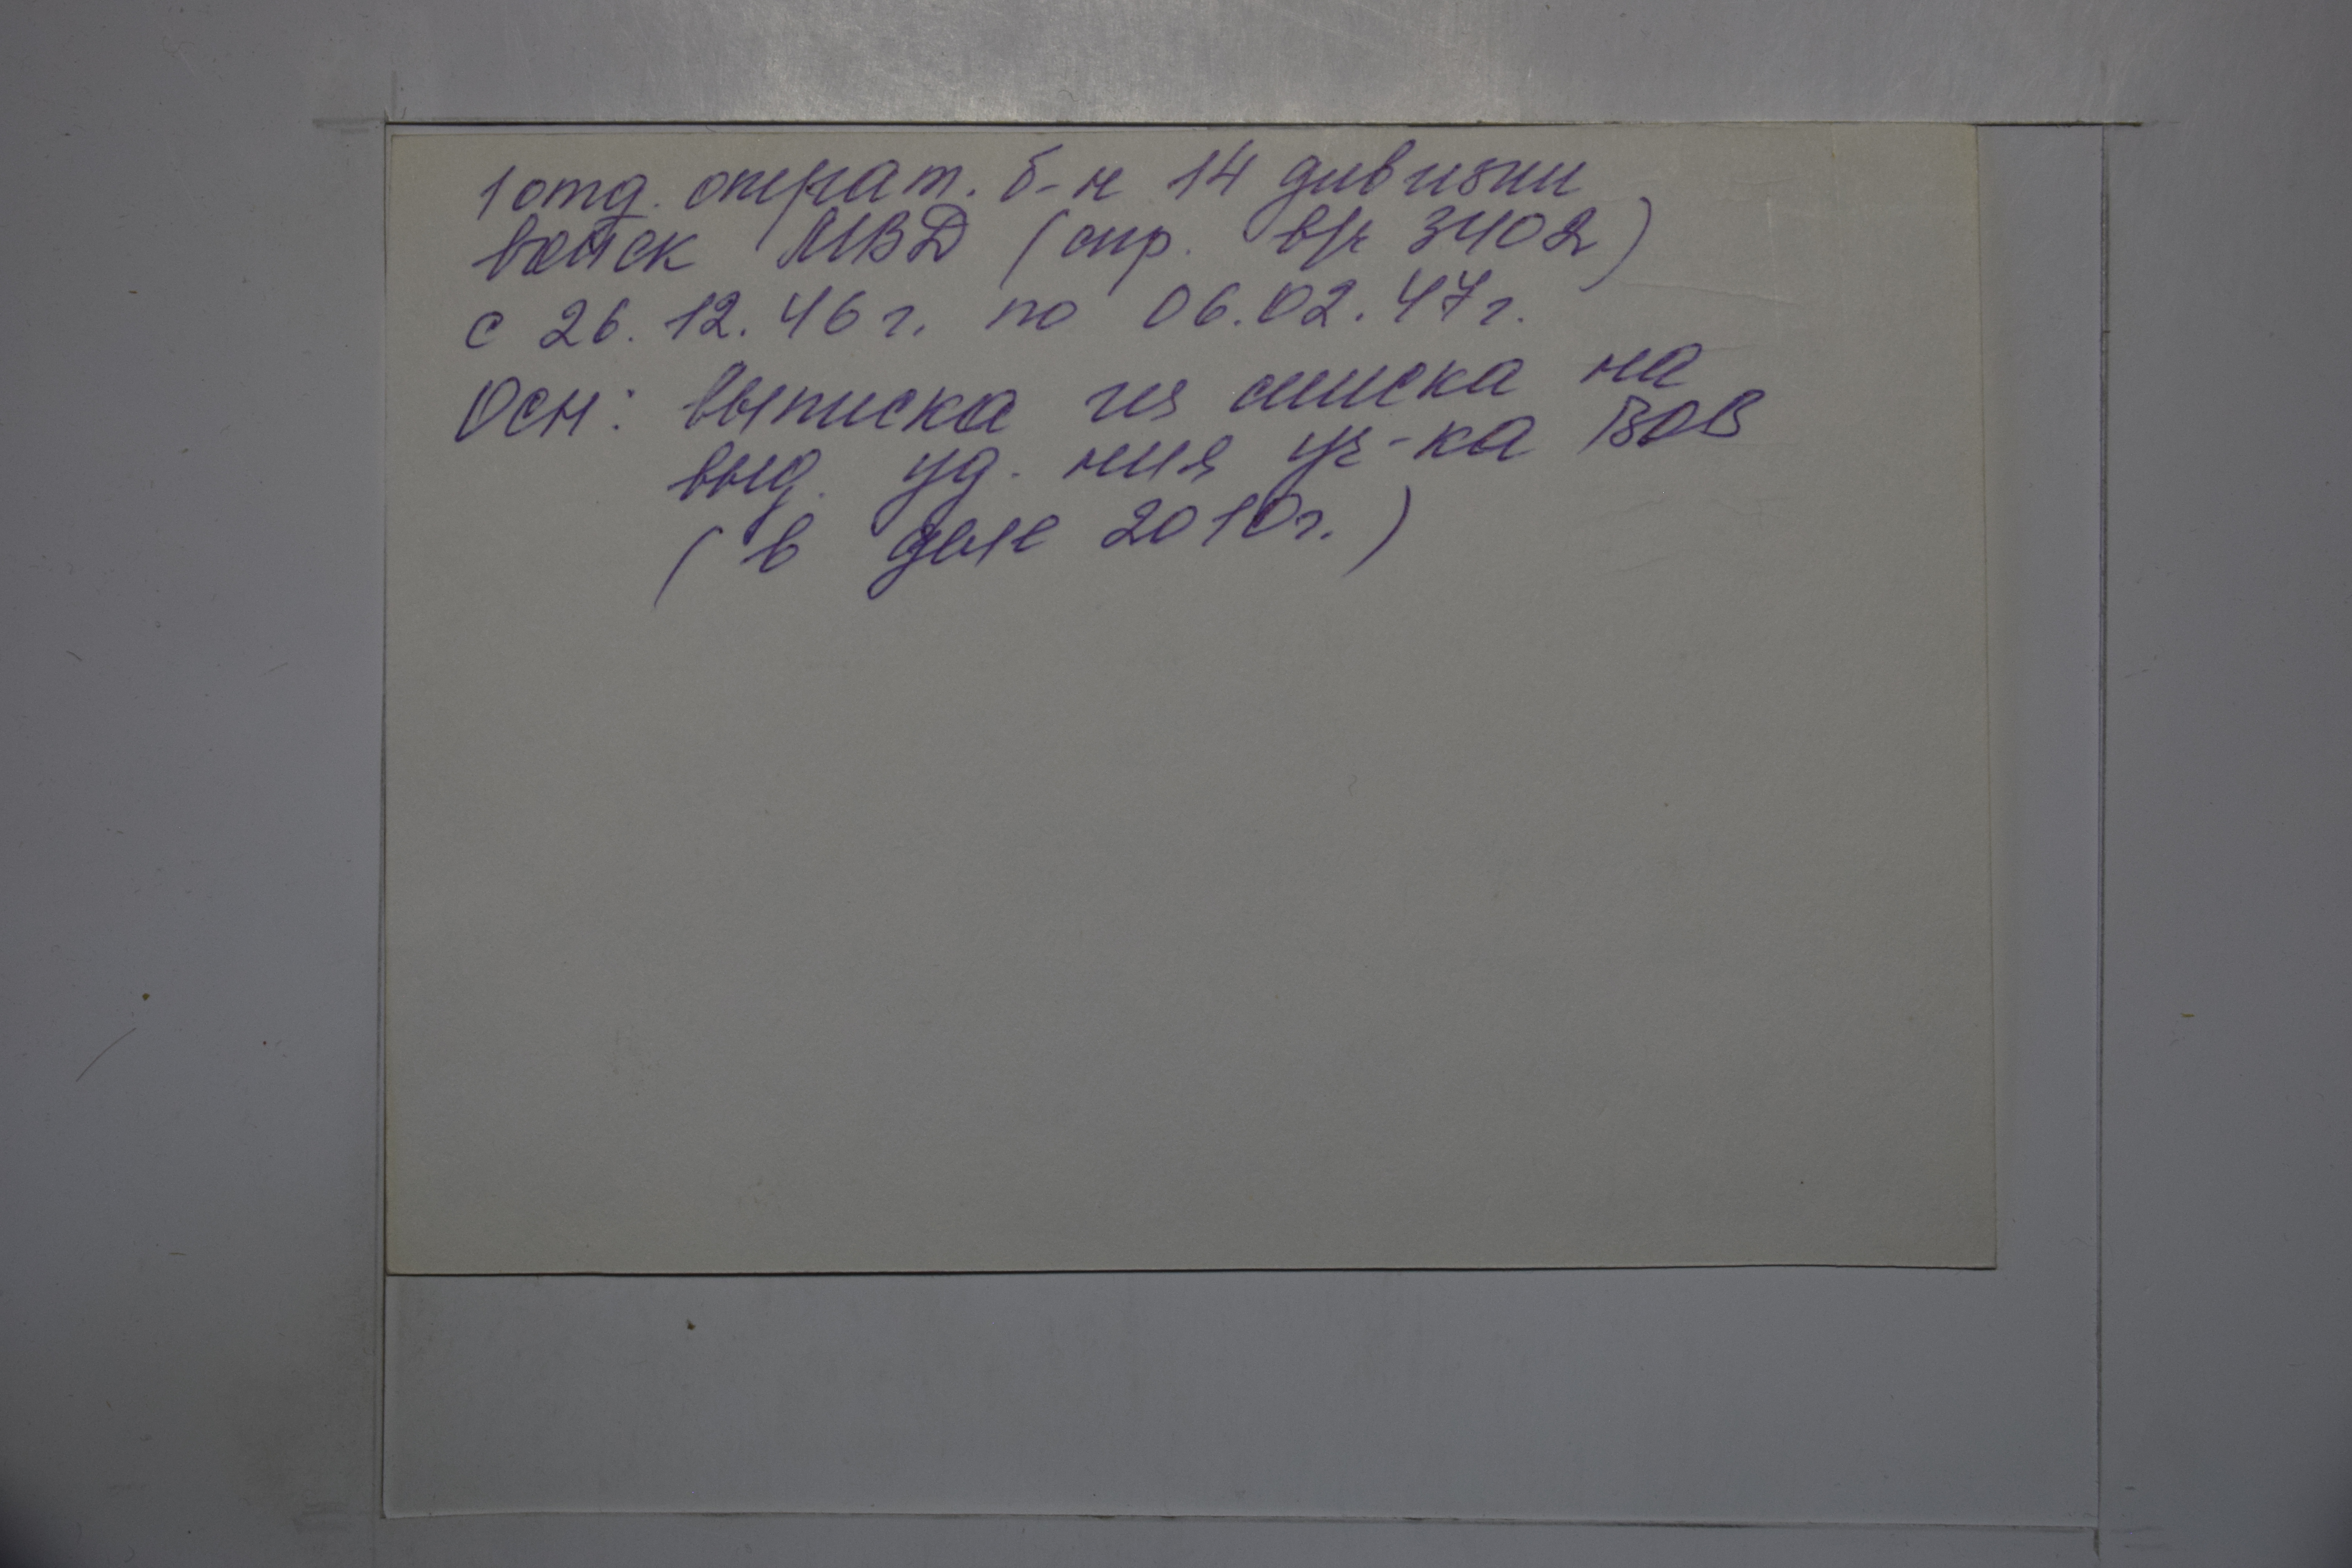 1 отд. операт. б-н 14 дивизии
войск МВД (спр. в/ч 3402)
с 26.12.46 г. по 06.02.47 г.
Осн: выписка из списка на
выд. уд. ния уч-ка ВОВ
(в деле 2010г.)